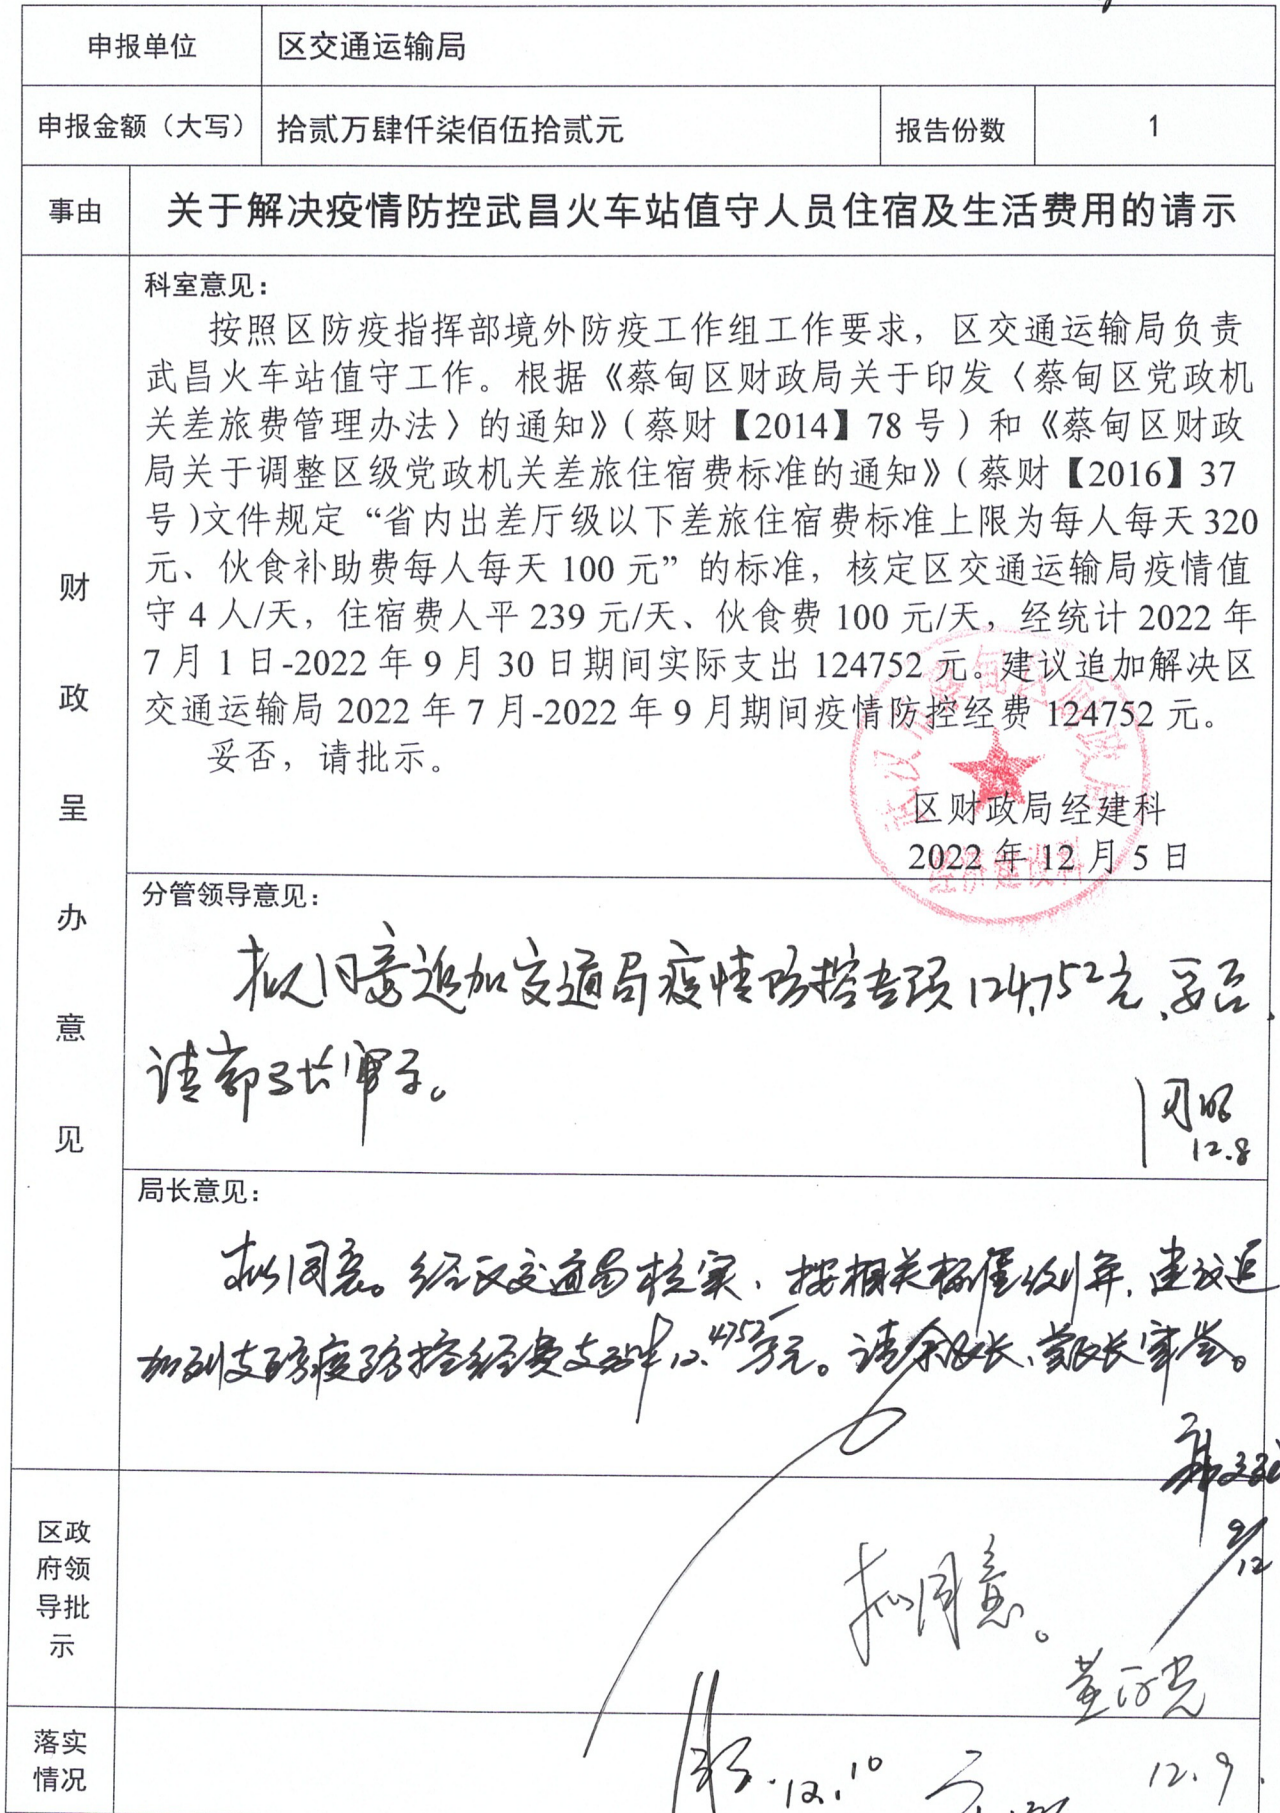 申报单位 区交通运输局
申报金额（大写） 拾贰万肆仟柒佰伍拾贰元 报告份数 1
事由 关于解决疫情防控武昌火车站值守人员住宿及生活费用的请示
财政呈办意见
科室意见：
按照区防疫指挥部境外防疫工作组工作要求，区交通运输局负责
武昌火车站值守工作。根据《蔡甸区财政局关于印发〈蔡甸区党政机
关差旅费管理办法〉的通知》（蔡财【2014】78号）和《蔡甸区财政
局关于调整区级党政机关差旅住宿费标准的通知》（蔡财【2016】37
号）文件规定“省内出差厅级以下差旅住宿费标准上限为每人每天320
元、伙食补助费每人每天100元”的标准，核定区交通运输局疫情值
守4人/天，住宿费人平239元/天、伙食费100元/天，经统计2022年
7月1日-2022年9月30日期间实际支出124752元。建议追加解决区
交通运输局2022年7月-2022年9月期间疫情防控经费124752元。
妥否，请批示。
区财政局经建科
2022年12月5日
武汉市蔡甸区财政局
经济建设科
分管领导意见：
拟同意追加交通局疫情防控专项124,752元，妥否，
请郭局长审示。
12.8
局长意见：
拟同意。经区交通局核实，按相关标准，建议追
防疫防控经费12.4752万元。请余区长、黄区长审签。
9/12
区政
府领
导批
示
拟同意。
12.9.
落实
情况
12.10